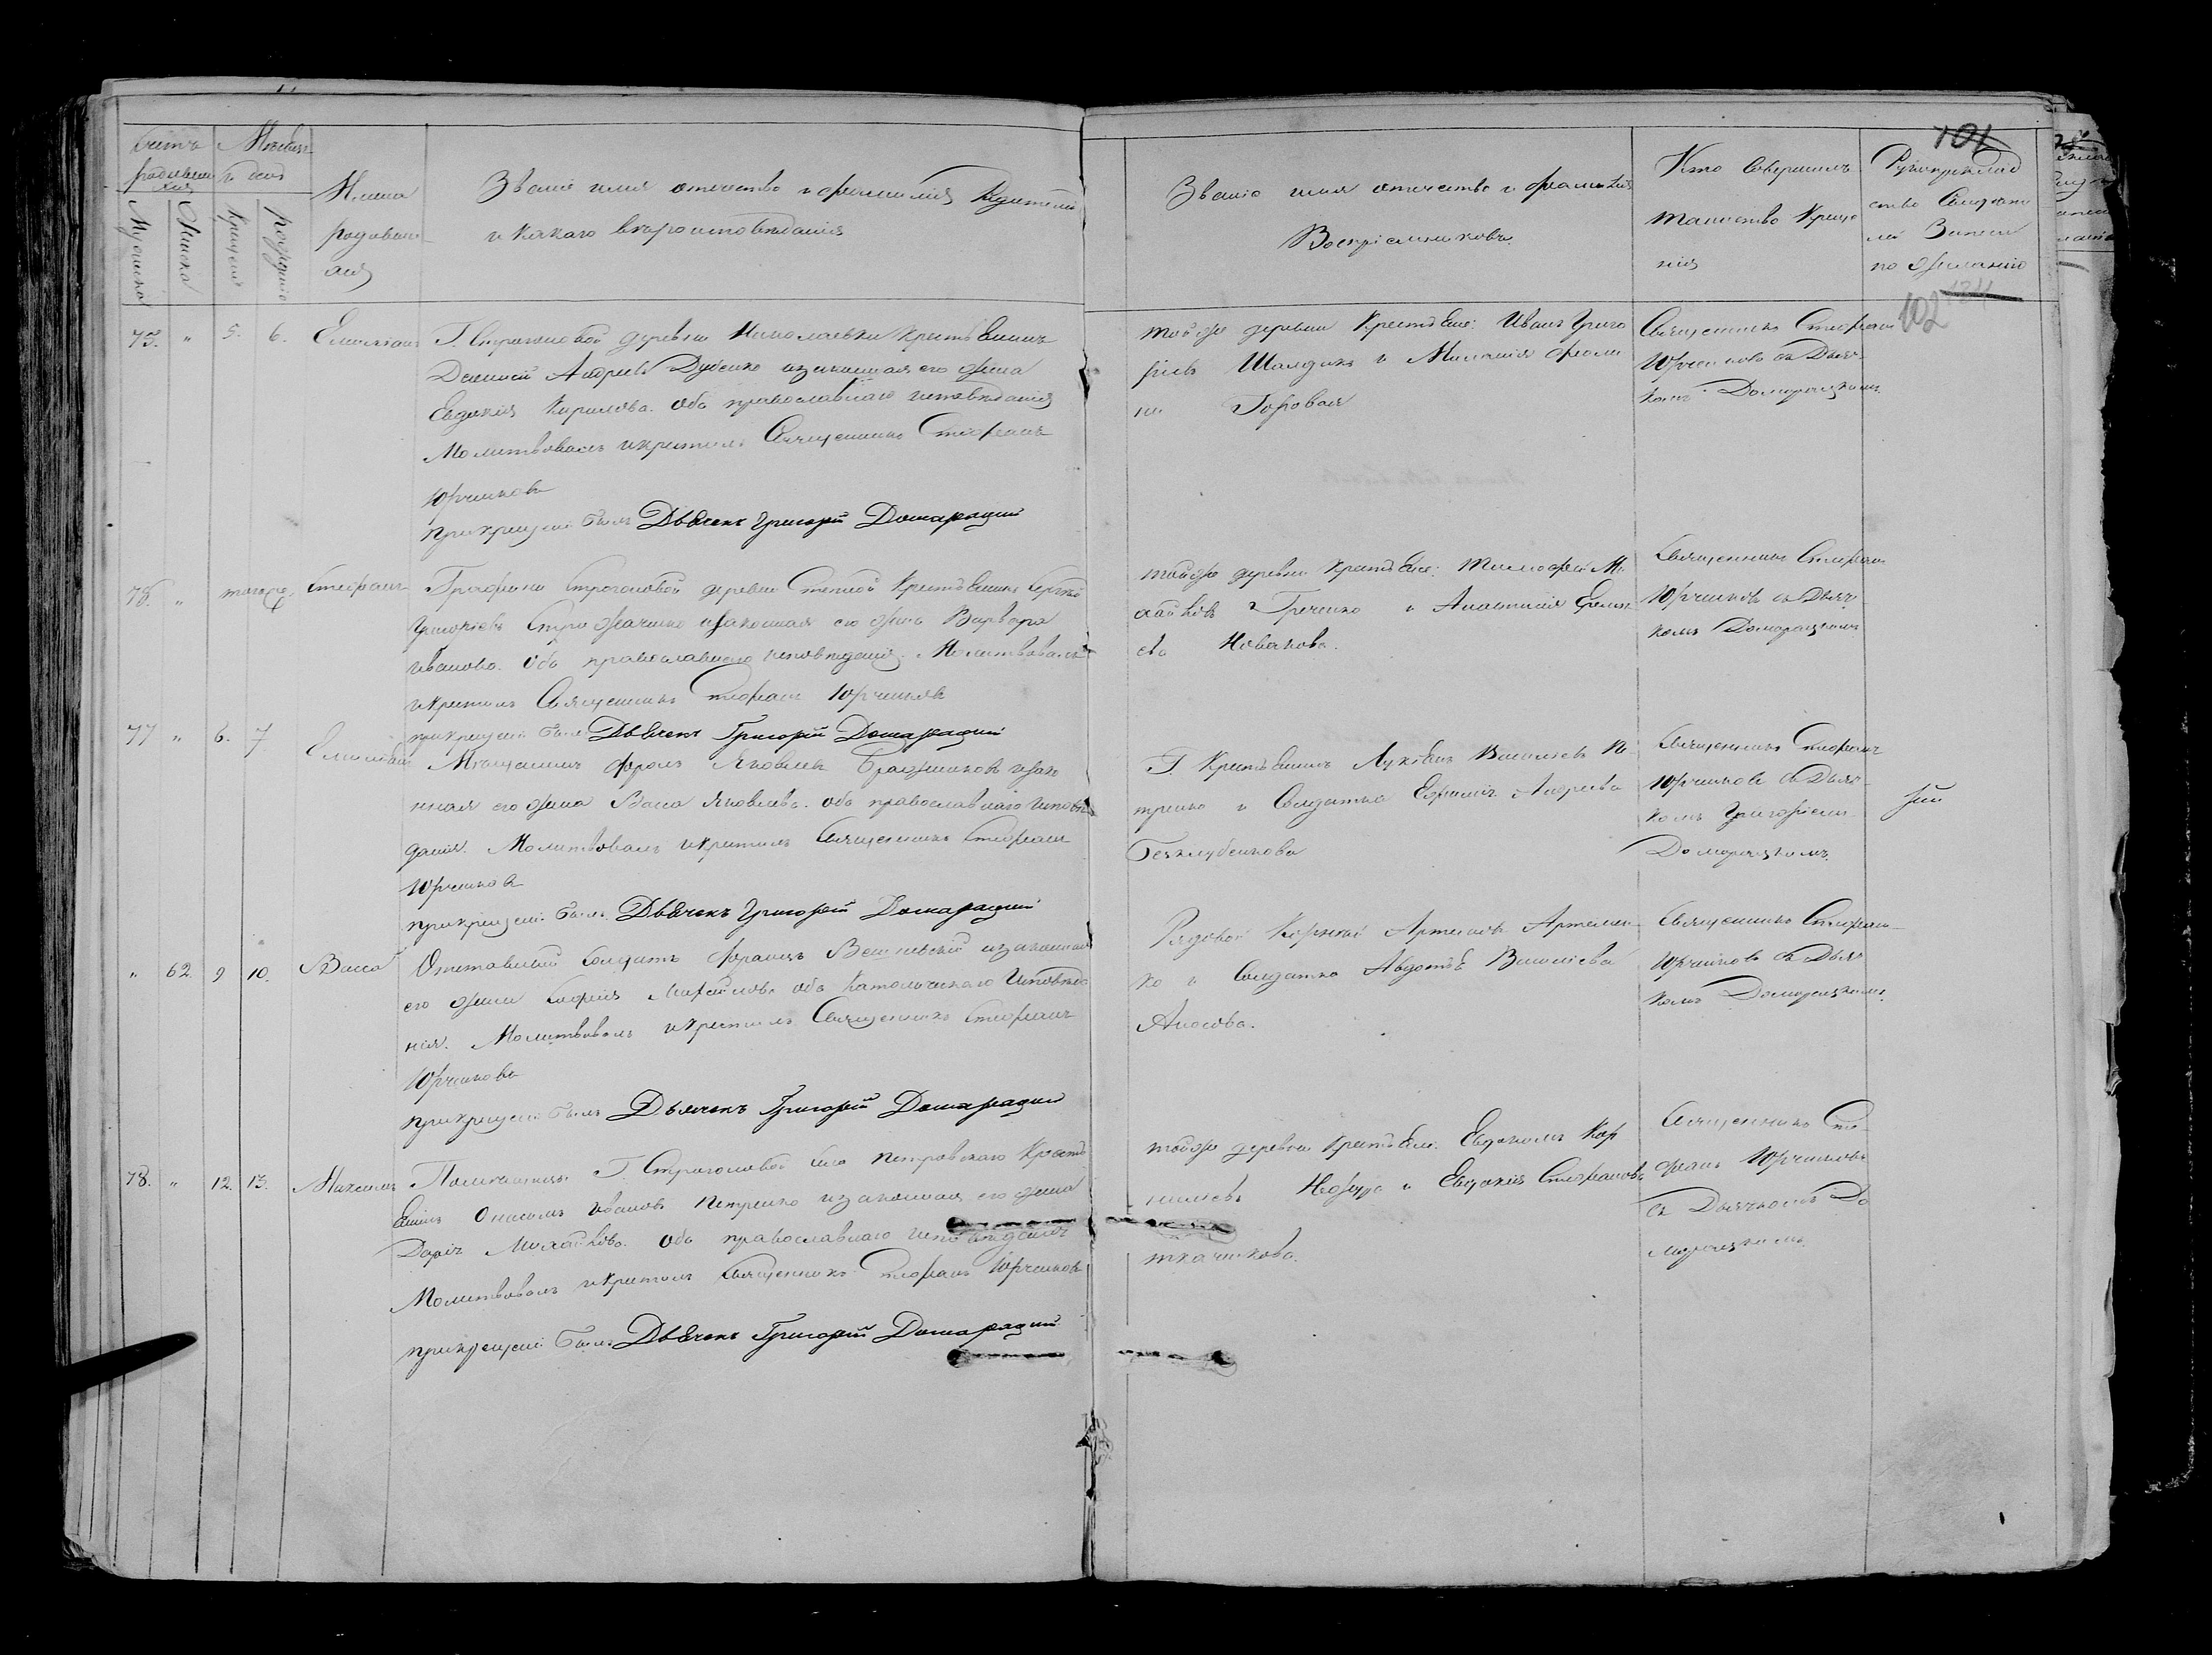 101
102
Счетъ родившихся
Мѣсяцъ и день
Мужеска
Женска
Крещенія
Рожденія
Имена родивших ся
Званіе имя отечество и фамилія Родителей
и какаго вѣроисповѣданія
Званіе имя отечество и фамилія
Воспріемниковъ.
Кто совершилъ
таинство Креще
нія
Рукоприклад
ство Свидѣте
лей Записи
по желанію
75. " 5. 6. Емиліанъ
Г. Строгоновой деревни Николаевки крестьянинъ
Андреевъ Дубенко и законная его жена
Евдокія Кирилова. оба православнаго исповѣданія
Молитвовалъ и крестилъ Священникъ Стефанъ
Юрченковъ
при крещеніи былъ Дьячекъ Григорій Домарацкій
той же деревни крестьяне: Иванъ Григо
рьевъ и
Горовая
Священникъ Стефанъ
Юрченковъ съ Дьяч
комъ Домарацкимъ.
76. " того же. Стефанъ
Графини Строгоновой деревни Степной крестьянинъ Сергѣй
Григорьевъ и законная его жена Варвара
Иванова. оба православнаго исповѣданія. Молитвовалъ
и крестилъ Священникъ Стефанъ Юрченковъ
при крещеніи былъ Дьячекъ Григорій Домарацкій
той же деревни крестьяне: Тимофей Ми
хайловъ Гречко и Анастасія
ва Новакова.
Священникъ Стефанъ
Юрченковъ съ Дьяч
комъ Домарацкимъ
77 " 6. 7 Емиліанъ
Мѣщанинъ Фролъ Яковлевъ Бражниковъ и зако
нная его жена Васса Яковлева. оба православнаго исповѣ
данія. Молитвовалъ и крестилъ Священникъ Стефанъ
Юрченковъ
при крещеніи былъ Дьячекъ Григорій Домарацкій
Г. Крестьянинъ Лукьянъ Васильевъ Пе
тренко и Солдатка Андреева
Безклубенкова
Священникъ Стефанъ
Юрченковъ съ Дьяч
комъ Григоріемъ
Домарацкимъ.
" 62. 9 10. Васса
Отставный Солдатъ Францъ и законная
его жена Софія оба Католическаго Исповѣда
нія. Молитвовалъ и крестилъ Священникъ Стефанъ
Юрченковъ
при крещеніи былъ Дьячекъ Григорій Домарацкій
Рядовой Корній Артемовъ Артемен
ко и Солдатка Авдотья Васильева
Аносова.
Священникъ Стефанъ
Юрченковъ съ Дьяч
комъ Домарацкимъ.
78. " 12. 13. Максимъ
Помѣщицы Г. Строгоновой села Петровскаго Кресть
янинъ Ивановъ Петренко и законная его жена
Дарія Михайлова. оба православнаго исповѣданія
Молитвовалъ и крестилъ Священникъ Стефанъ Юрченковъ
при крещеніи былъ Дьячекъ Григорій Домарацкій
той же деревни крестьяне: Евдокимъ Кор
ниліевъ и Евдокія Стефанова
Ткачикова.
Священникъ Сте
фанъ Юрченковъ
съ Дьячкомъ До
марацкимъ.